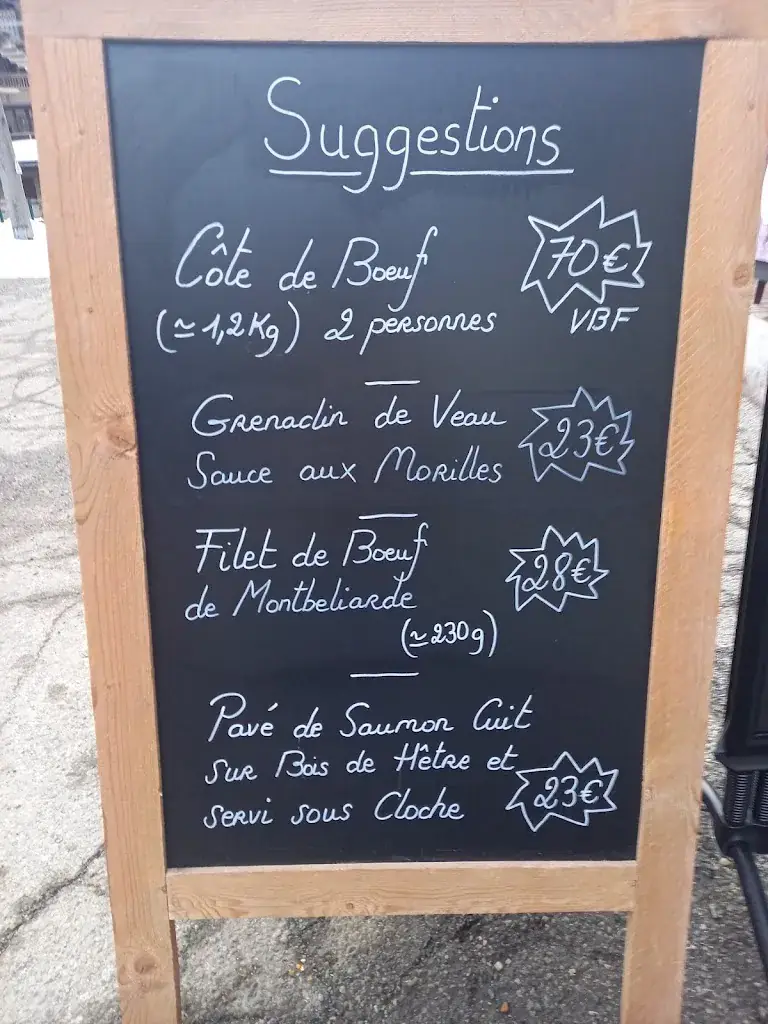 Suggestions
Côte de Boeuf 70€
(≃ 1,2Kg) 2 personnes VBF
Grenadin de Veau
Sauce aux Morilles 23€
Filet de Boeuf
de Montbeliarde 28€
(≃230g)
Pavé de Saumon Cuit
sur Bois de Hêtre et
servi sous Cloche 23€